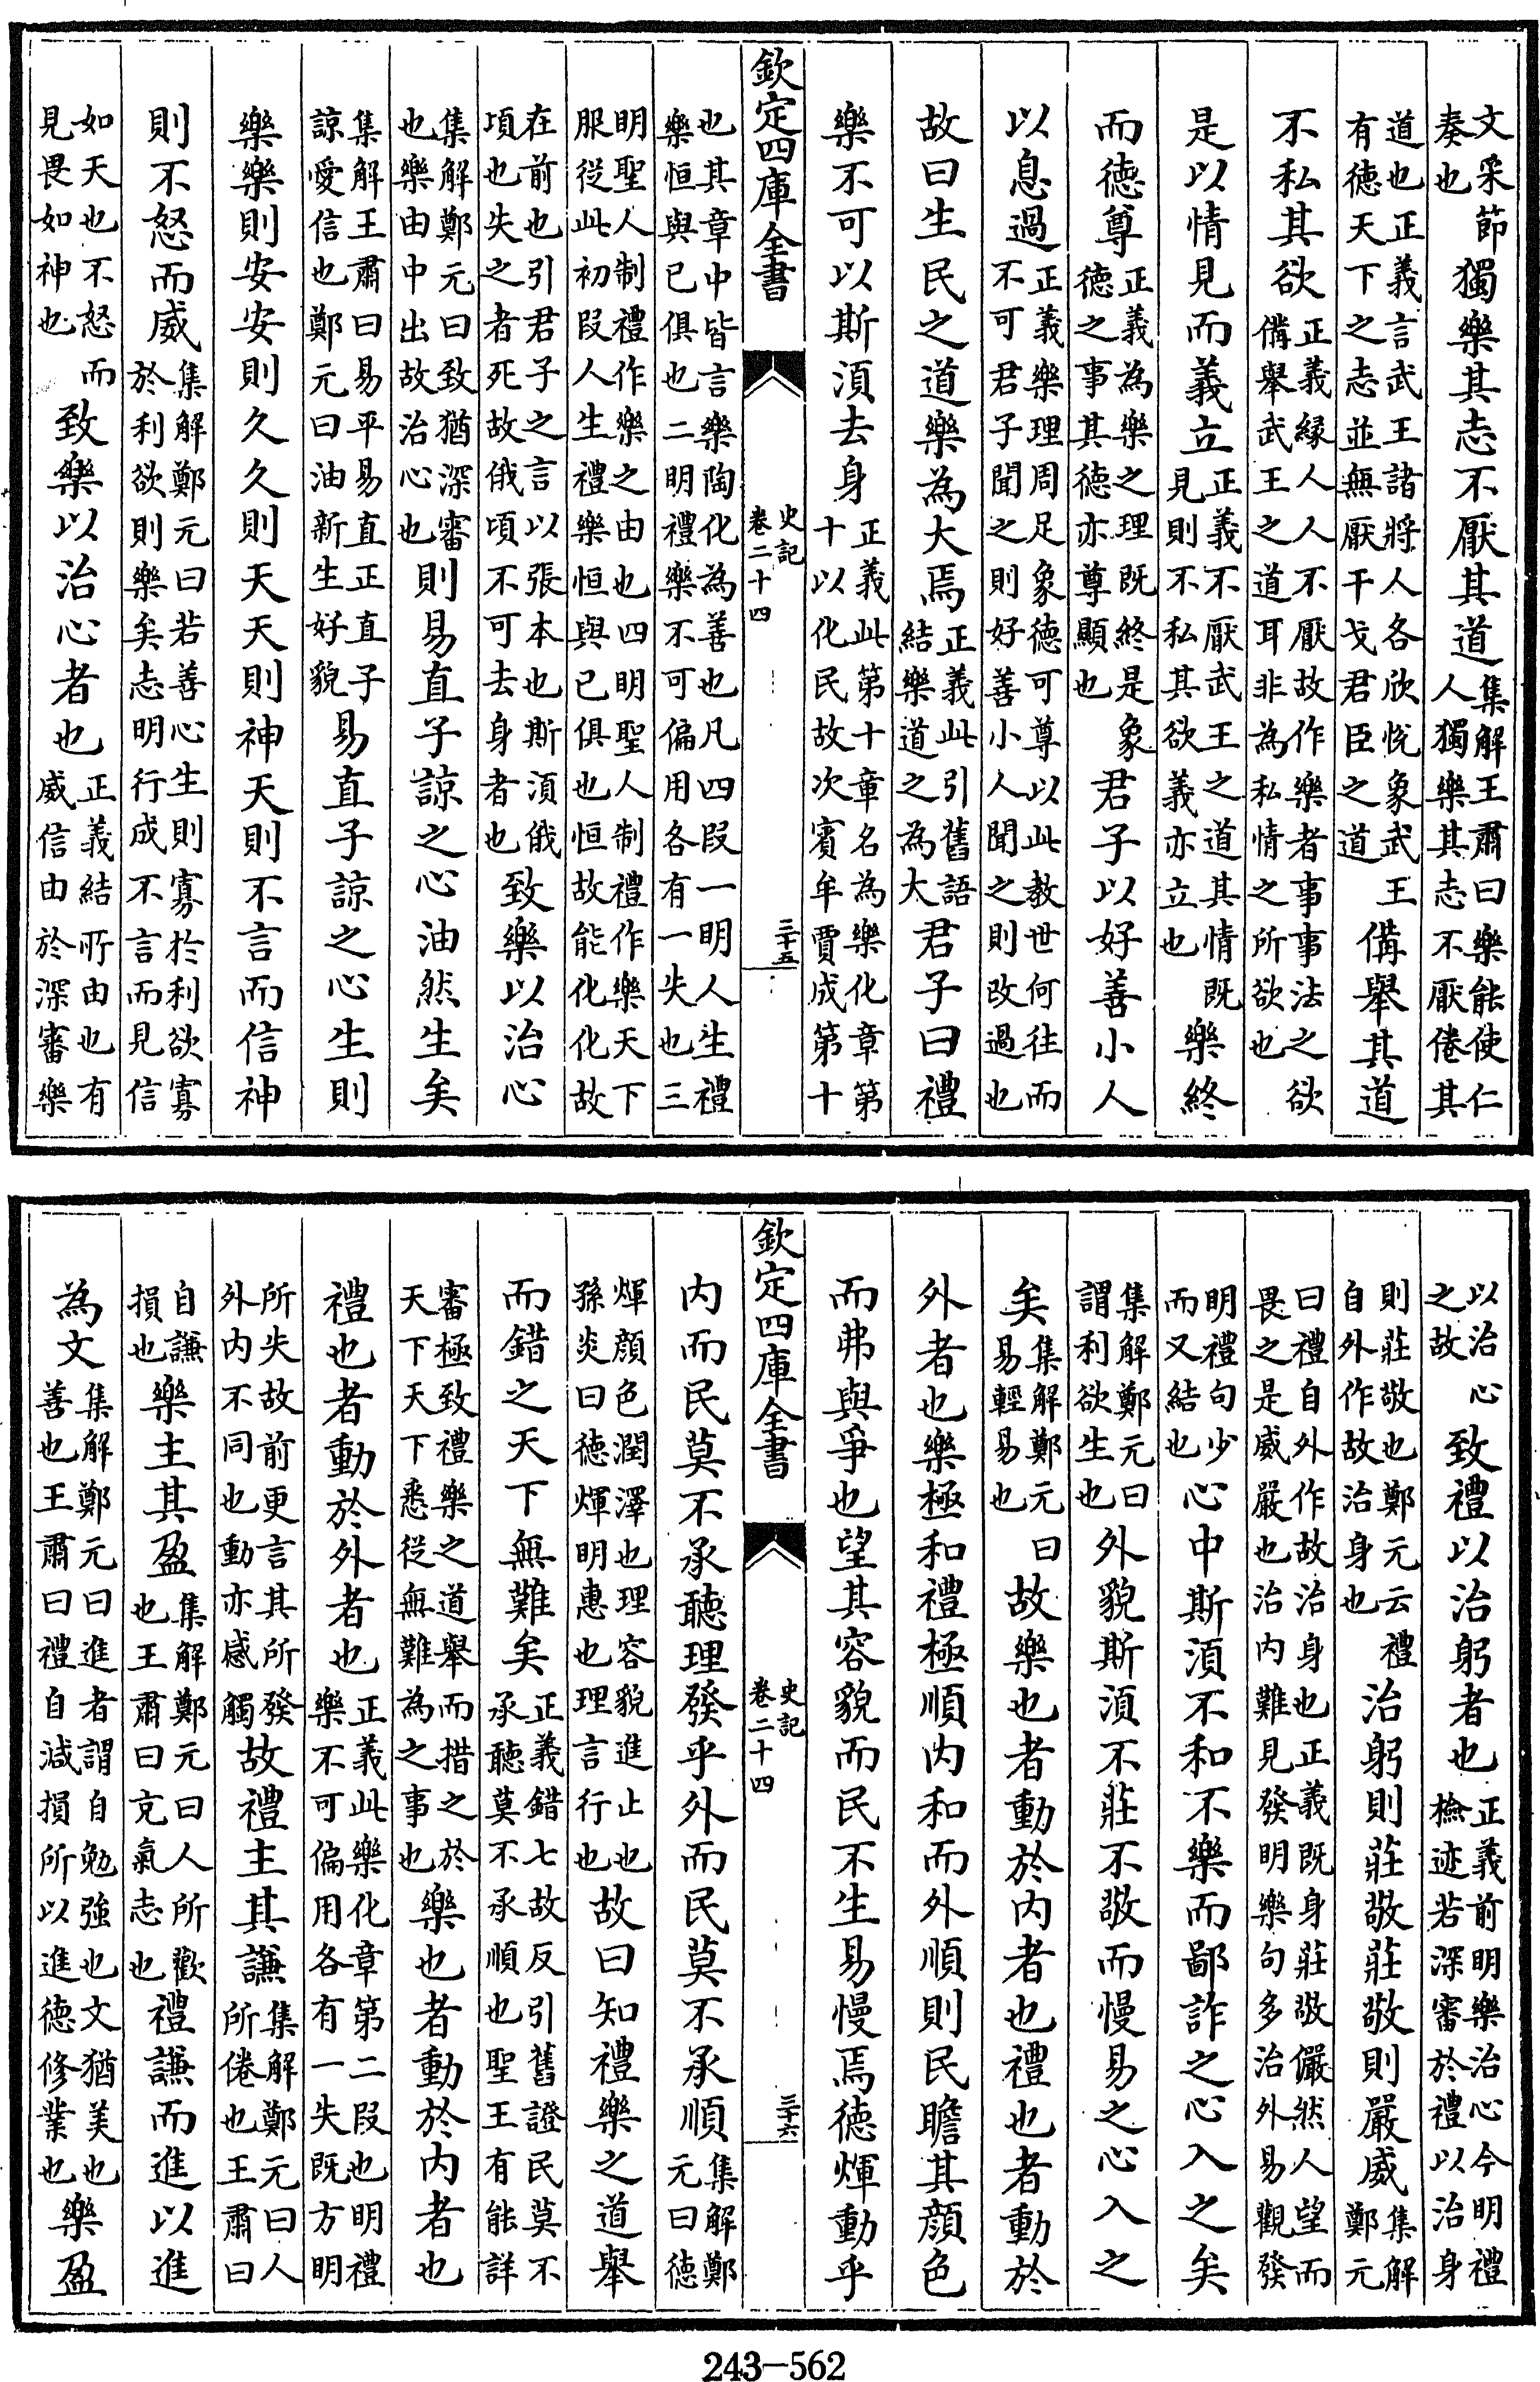 文采節奏也獨樂其志不厭其道集解王肅曰樂能使仁人獨樂其志不厭倦其
道也正義言武王諸將人各欣悅象武王有德天下之志並無厭干戈君臣之道偹舉其道
不私其欲正義縁人人不厭故作樂者事事法之欲偹舉武王之道耳非為私情之所欲也
是以情見而義立正義不厭武王之道其情既見則不私其欲義亦立也樂終
而德尊正義為樂之理既終是象德之事其德亦尊顯也君子以好善小人
以息過正義樂理周足象德可尊以此教世何往而不可君子聞之則好善小人聞之則改過也
故曰生民之道樂為大焉正義此引舊語結樂道之為大君子曰禮
樂不可以斯須去身正義此第十章名為樂化章第十以化民故次賓牟賈成第十
欽定四庫全書 史記卷二十四 三十五
也其章中皆言樂陶化為善也凡四段一明人生禮樂恒與已俱也二明禮樂不可偏用各有一失也三
明聖人制禮作樂之由也四明聖人制禮作樂天下服從此初段人生禮樂恒與已俱也恒故能化化故
在前也引君子之言以張本也斯須俄頃也失之者死故俄頃不可去身者也致樂以治心
集解鄭元曰致猶深審也樂由中出故治心也則易直子諒之心油然生矣
集解王肅曰易平易直正直子諒愛信也鄭元曰油新生好貌易直子諒之心生則
樂樂則安安則久久則天天則神天則不言而信神
則不怒而威集解鄭元曰若善心生則寡於利欲寡於利欲則樂矣志明行成不言而見信
如天也不怒而見畏如神也致樂以治心者也正義結所由也有威信由於深審樂
以治心之故致禮以治躬者也正義前明樂治心今明禮檢迹若深審於禮以治身
則莊敬也鄭元云禮自外作故治身也治躬則莊敬莊敬則嚴威集解鄭元
曰禮自外作故治身也正義既身莊敬儼然人望而畏之是威嚴也治内難見發明樂句多治外易觀發
明禮句少而又結也心中斯須不和不樂而鄙詐之心入之矣
集解鄭元曰謂利欲生也外貌斯須不莊不敬而慢易之心入之
矣集解鄭元曰易輕易也故樂也者動於内者也禮也者動於
外者也樂極和禮極順内和而外順則民瞻其顔色
而弗與爭也望其容貌而民不生易慢焉德煇動乎
欽定四庫全書 史記卷二十四 三十六
内而民莫不承聽理發乎外而民莫不承順集解鄭元曰德
煇顔色潤澤也理容貌進止也孫炎曰德煇明惠也理言行也故曰知禮樂之道舉
而錯之天下無難矣正義錯七故反引舊證民莫不承聽莫不承順也聖王有能詳
審極致禮樂之道舉而措之於天下天下悉從無難為之事也樂也者動於内者也
禮也者動於外者也正義此樂化章第二段也明禮樂不可偏用各有一失既方明
所失故前更言其所發外内不同也動亦感觸故禮主其謙集解鄭元曰人所倦也王肅曰
自謙損也樂主其盈集解鄭元曰人所歡也王肅曰充氣志也禮謙而進以進
為文集解鄭元曰進者謂自勉強也文猶美也善也王肅曰禮自減損所以進德修業也樂盈
243-562